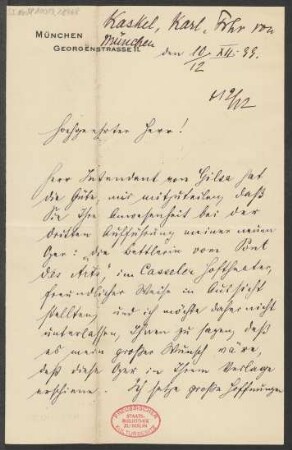 Kaskel, Karl, Frhr von
München
MÜNCHEN
GEORGENSTRASSE 11.
den 10/12 XII. 99.
Hochgeehrter Herr!
Herr Intendant von Gilsa hat
die Güte, mir mitzuteilen, daß
Sie Ihre Anwesenheit bei der
dritten Aufführung meiner neuen
Oper: „die Bettlerin vom Pont
des Arts" im Casseler Hoftheater,
freundlicher Weise in Aussicht
stellten, und ich möchte daher nicht
unterlassen, Ihnen zu sagen, daß
es mein großer Wunsch wäre,
daß diese Oper in Ihrem Verlage
erschiene. Ich setze große Hoffnungen